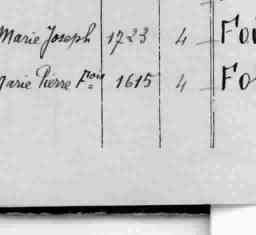 Marie Joseph 1723 4 Foi
Marie Pierre Fçois 1615 4 Fo